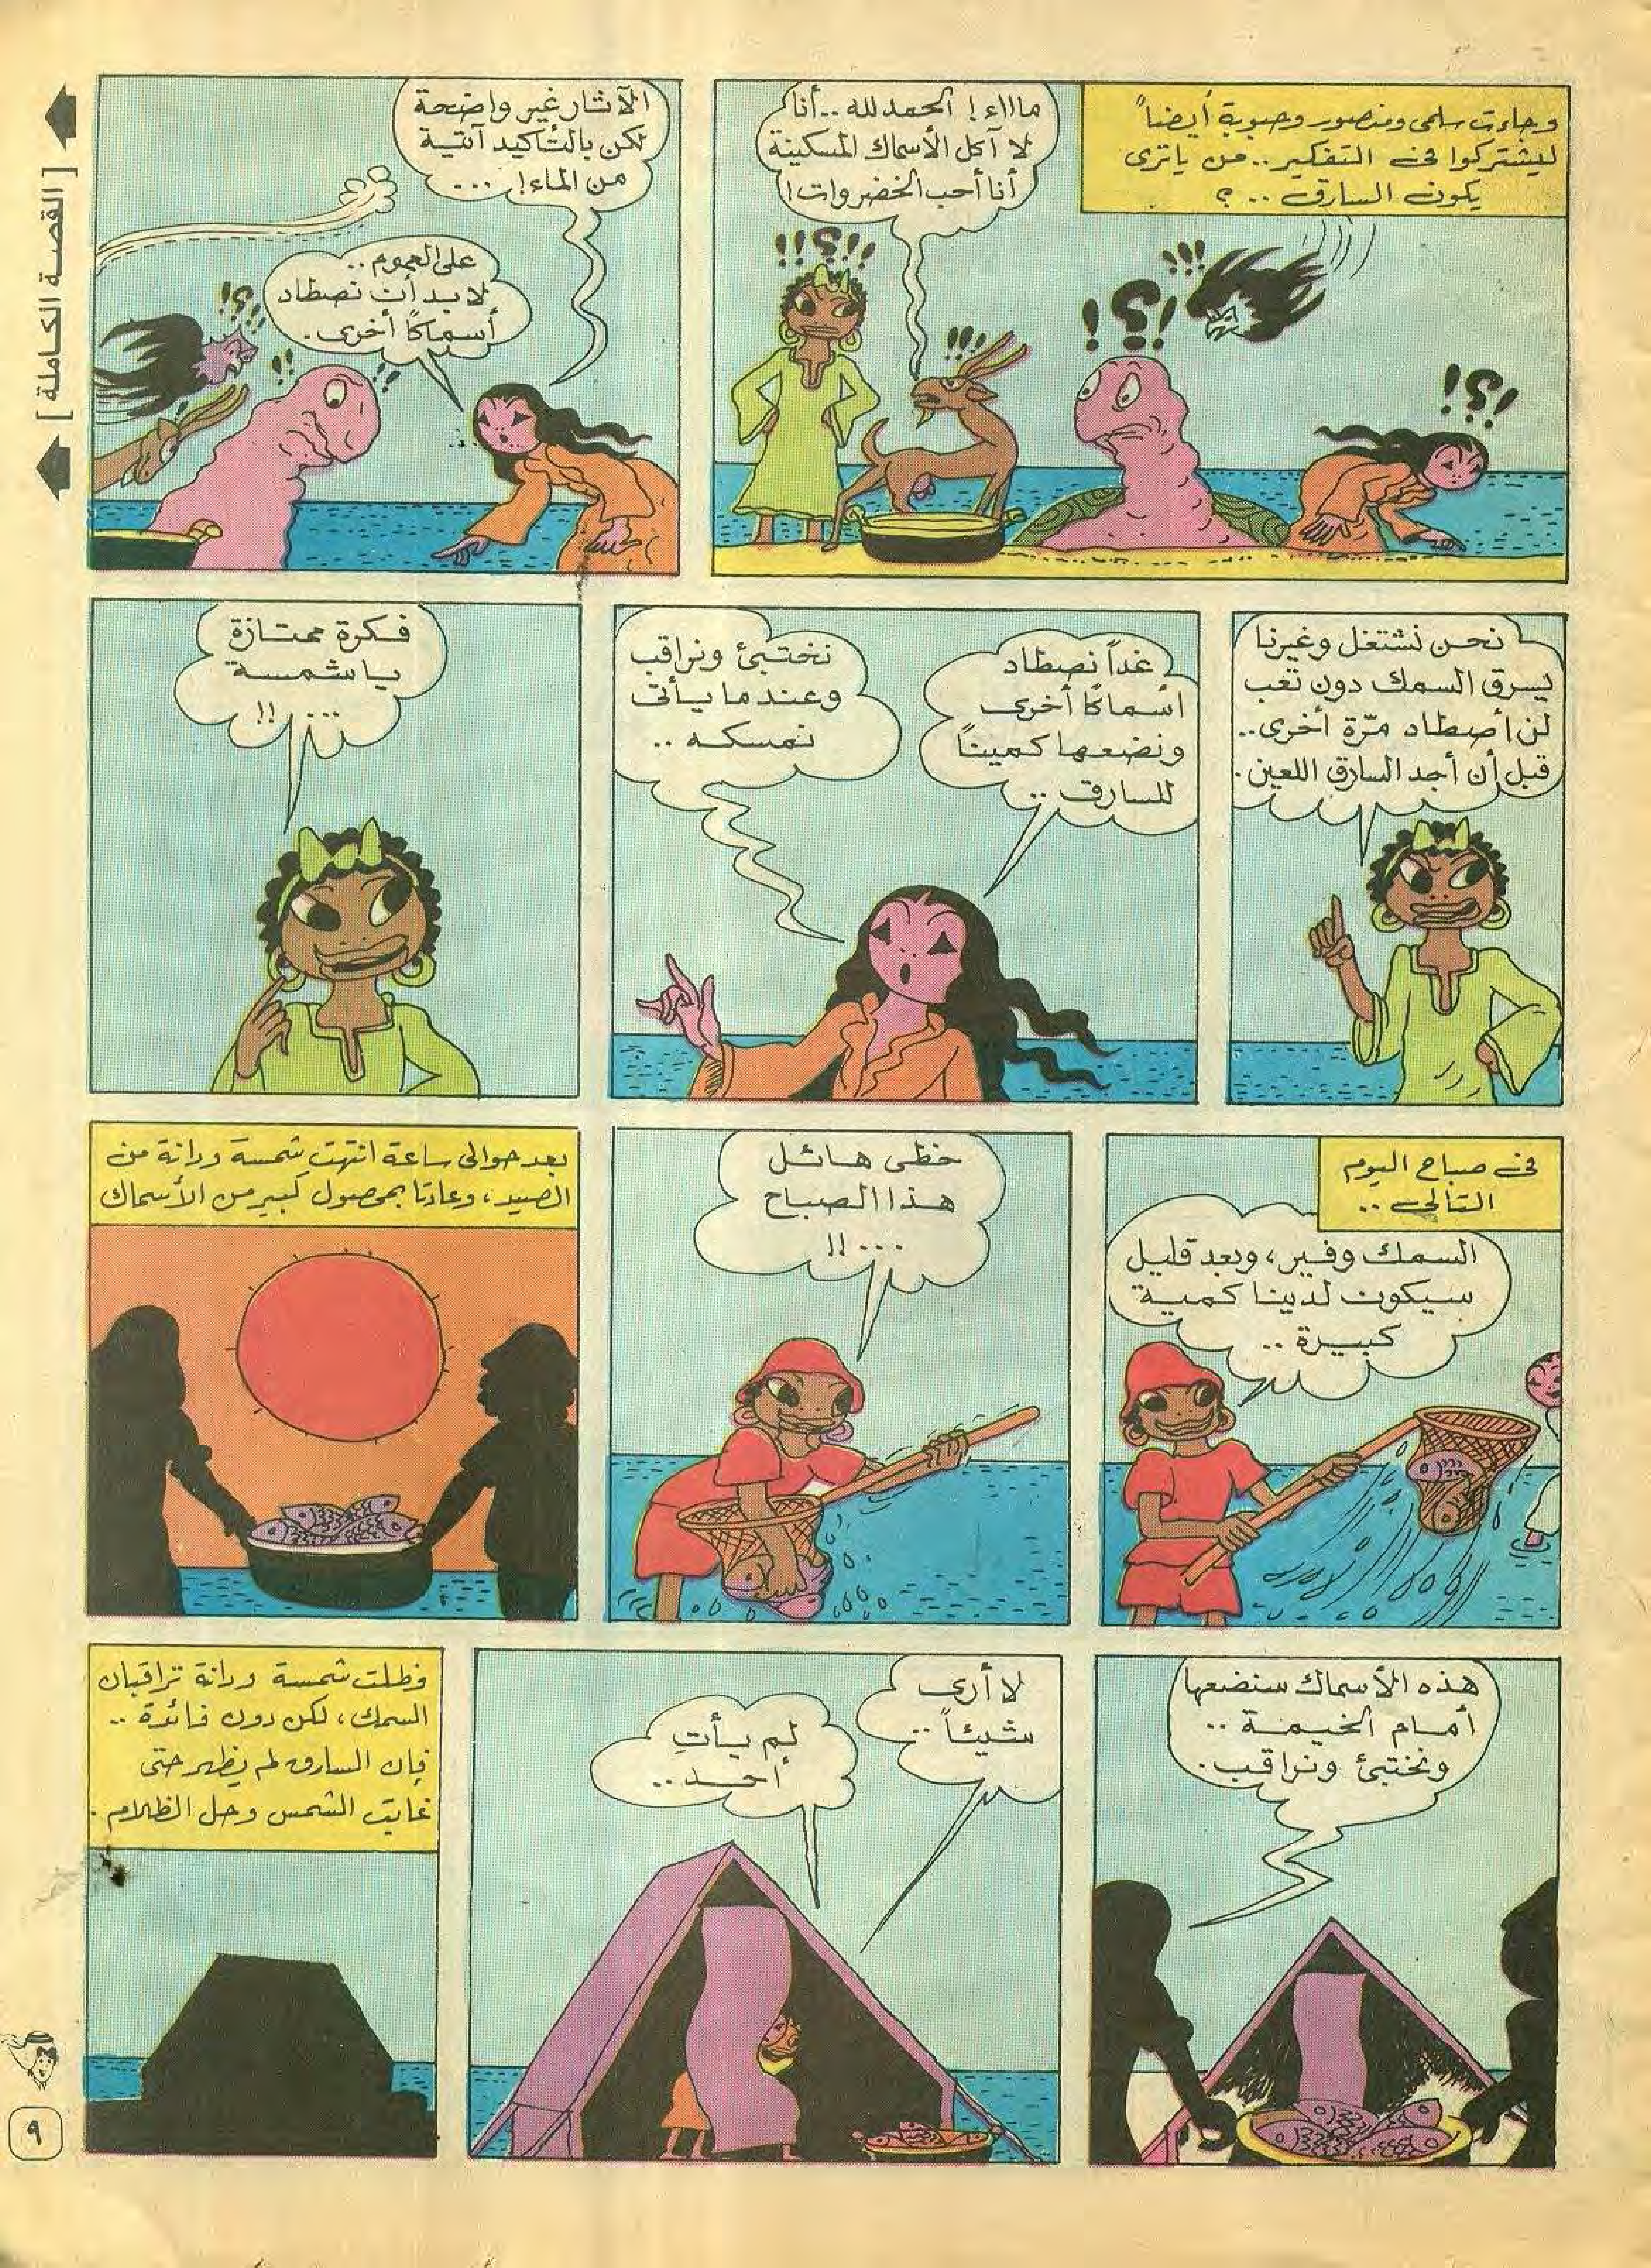 وجاءت سلمى ومنصور وحبوبة أيضاً
ليشتركوا في التفكير .. من يا ترى
يكون السارق .. ؟
مااااء! الحمد لله .. أنا
لا آكل الأسماك المسكينة
أنا أحب الخضروات!
!!؟!!!
!!!
!؟!
!!!
!؟!
الآثار غير واضحة
لكن بالتأكيد آتية
من الماء! ...
على العموم ..
لا بد أن نصطاد
أسماكاً أخرى .
!؟!!
!!
!!
[ القصة الكاملة ]
نحن نشتغل وغيرنا
يسرق السمك دون تعب
لن أصطاد مرّة أخرى ..
قبل أن أجد السارق اللعين .
غداً نصطاد
أسماكاً أخرى
ونضعها كمينا
للسارق ..
نختبئ ونراقب
وعندما يأتي
نمسكه ..
فكرة ممتازة
يا شمسة
... !!
في صباح اليوم
التالي ..
السمك وفير، وبعد قليل
سيكون لدينا كمية
كبيرة ..
حظي هائل
هذا الصباح
... !!
بعد حوالي ساعة انتهت شمسة ودانة من
الصيد، وعادتا بمحصول كبير من الأسماك
هذه الأسماك سنضعها
أمام الخيمة ..
ونختبئ ونراقب .
لا أرى
شيئاً ..
لم يأتِ
أحد ..
وظلت شمسة ودانة تراقبان
السمك، لكن دون فائدة ..
فإن السارق لم يظهر حتى
غابت الشمس وحل الظلام .
٩